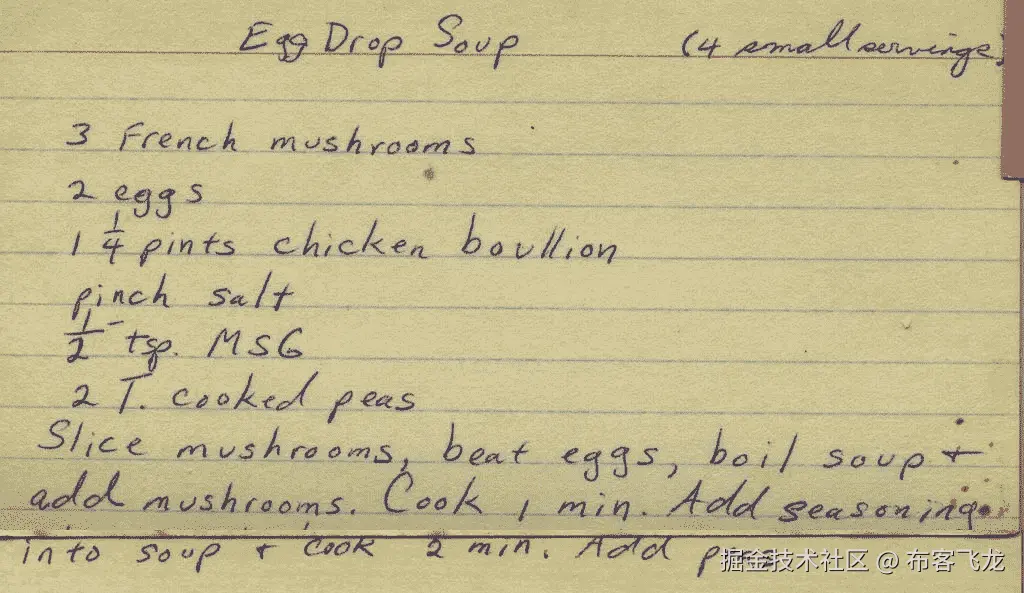 Egg Drop Soup (4 small servings)
3 French mushrooms
2 eggs
1 1/4 pints chicken boullion
pinch salt
1/2 tsp. MSG
2 T. cooked peas
Slice mushrooms, beat eggs, boil soup +
add mushrooms. Cook 1 min. Add seasoning
into soup + cook 2 min. Add peas
掘金技术社区 @ 布客飞龙